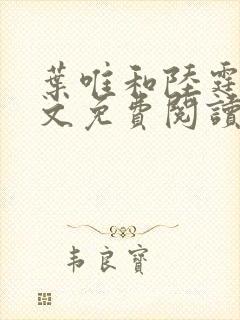 葉唯和陸霆
文免費閱讀
韦良寶